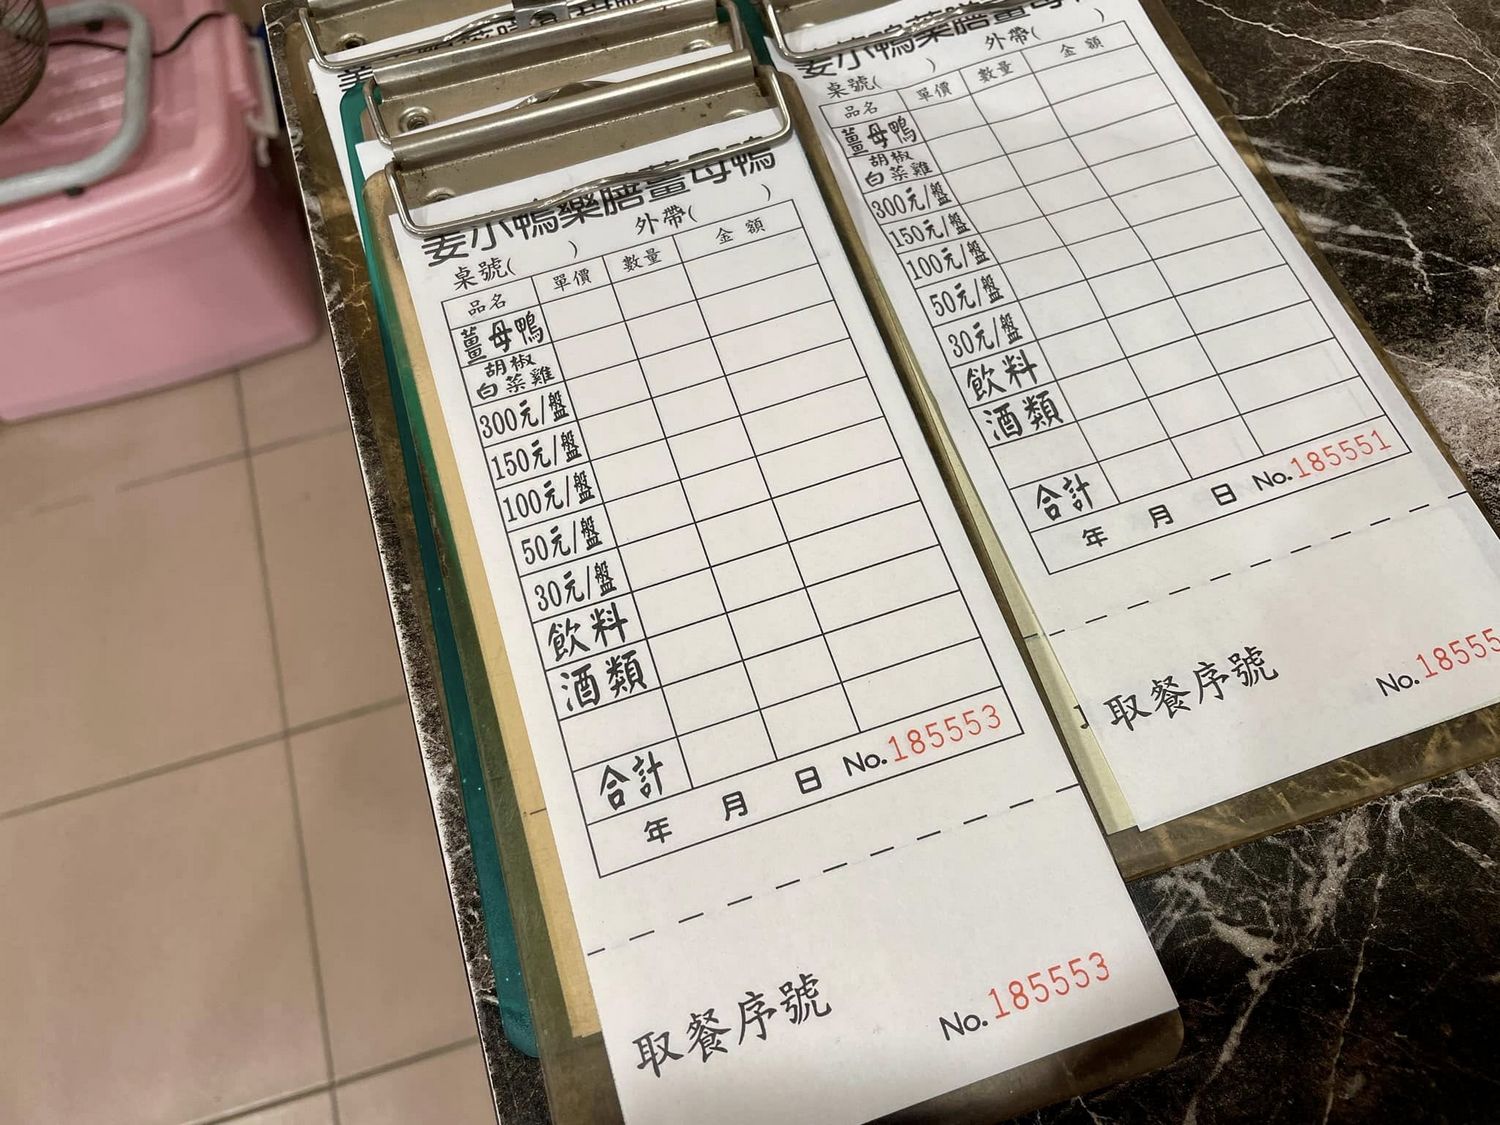 姜小鴨藥膳薑母鴨
桌號(　　) 外帶(　　)
品名 單價 數量 金額
薑母鴨
胡椒
白菜雞
300元/盤
150元/盤
100元/盤
50元/盤
30元/盤
飲料
酒類
合計
年 月 日 No.185553
取餐序號 No.185553
姜小鴨藥膳薑母
桌號(　　) 外帶(　　)
品名 單價 數量 金額
薑母鴨
胡椒
白菜雞
300元/盤
150元/盤
100元/盤
50元/盤
30元/盤
飲料
酒類
合計
年 月 日 No.185551
取餐序號 No.18555